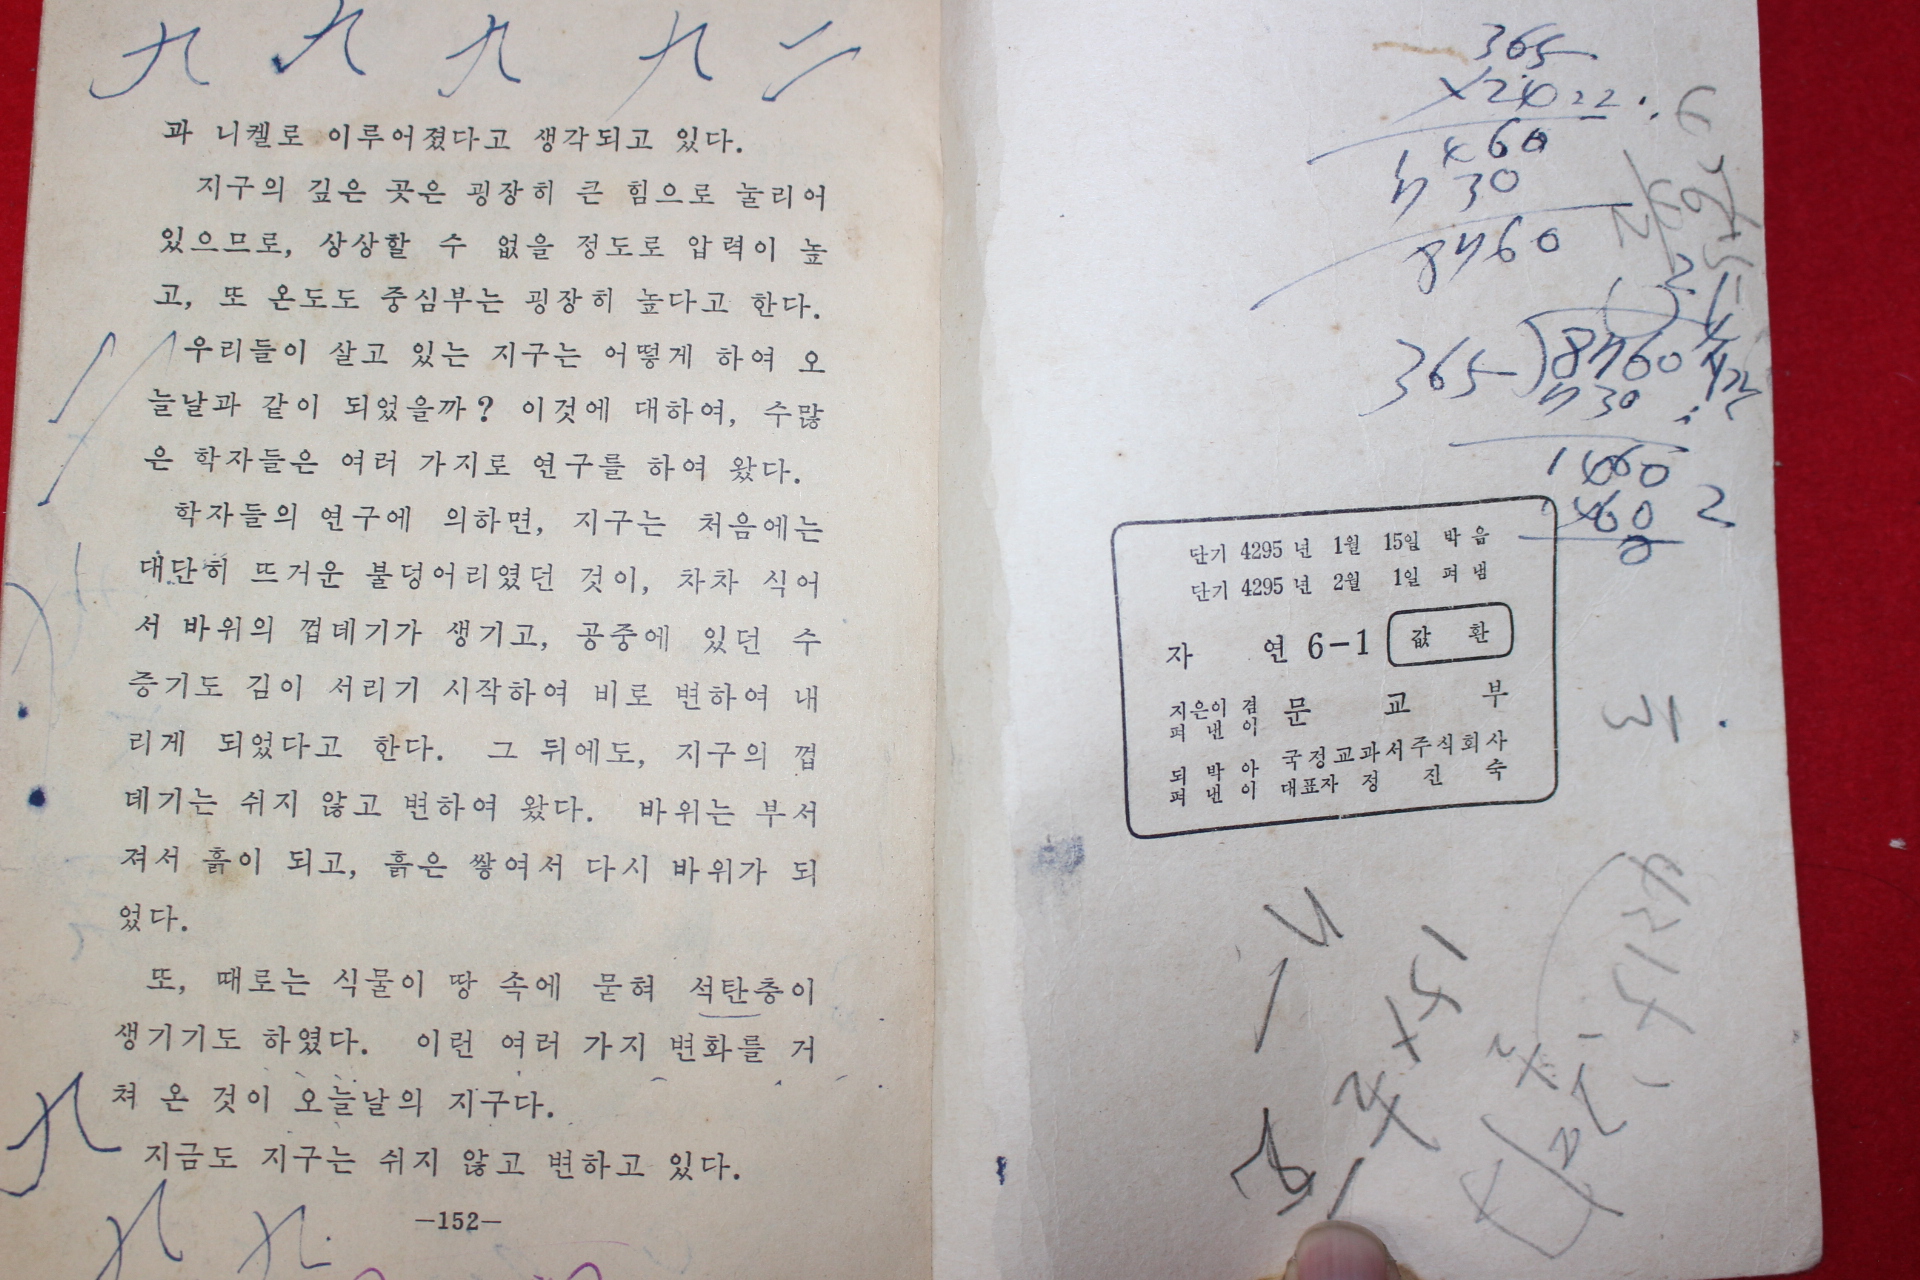 九 九 九 九 二
과 니켈로 이루어졌다고 생각되고 있다.
지구의 깊은 곳은 굉장히 큰 힘으로 눌리어
있으므로, 상상할 수 없을 정도로 압력이 높
고, 또 온도도 중심부는 굉장히 높다고 한다.
우리들이 살고 있는 지구는 어떻게 하여 오
늘날과 같이 되었을까? 이것에 대하여, 수많
은 학자들은 여러 가지로 연구를 하여 왔다.
학자들의 연구에 의하면, 지구는 처음에는
대단히 뜨거운 불덩어리였던 것이, 차차 식어
서 바위의 껍데기가 생기고, 공중에 있던 수
증기도 김이 서리기 시작하여 비로 변하여 내
리게 되었다고 한다. 그 뒤에도, 지구의 껍
데기는 쉬지 않고 변하여 왔다. 바위는 부서
져서 흙이 되고, 흙은 쌓여서 다시 바위가 되
었다.
또, 때로는 식물이 땅 속에 묻혀 석탄층이
생기기도 하였다. 이런 여러 가지 변화를 거
쳐 온 것이 오늘날의 지구다.
지금도 지구는 쉬지 않고 변하고 있다.
九
九 九
—152—
365
460
730
8760
365)8760
730
1460
단기 4295 년 1월 15일 박음
단기 4295 년 2월 1일 펴냄
자 연 6-1 값 환
지은이 겸 펴낸이 문교부
박아 펴낸이 국정교과서주식회사
대표자 정진숙